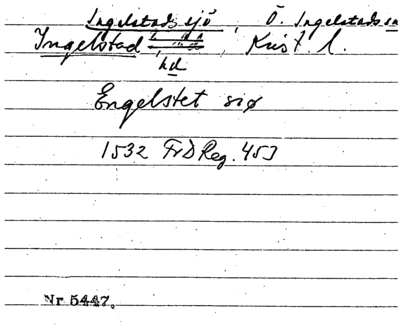 Ingelstads sjö, Ö. Ingelstads sn
Ingelstad, Krist. l.
hd
Engelstet siø
1532 FrD Reg. 453
Nr 5447.